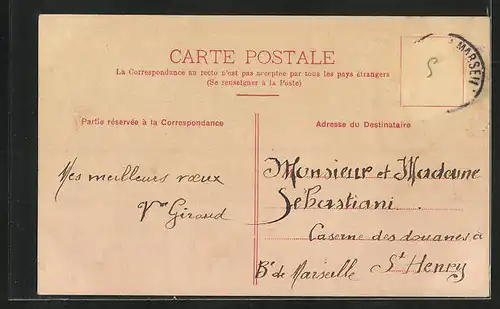 CARTE POSTALE
La Correspondance au recto n'est pas acceptée par tous les pays étrangers
(Se renseigner à la Poste)
MARSEI
5
Partie réservée à la Correspondance
Adresse du Destinataire
Mes meilleurs vœux
Vve Giraud
Monsieur et Madame
Sébastiani
Caserne des douanes à
St Henry
Bt de Marseille